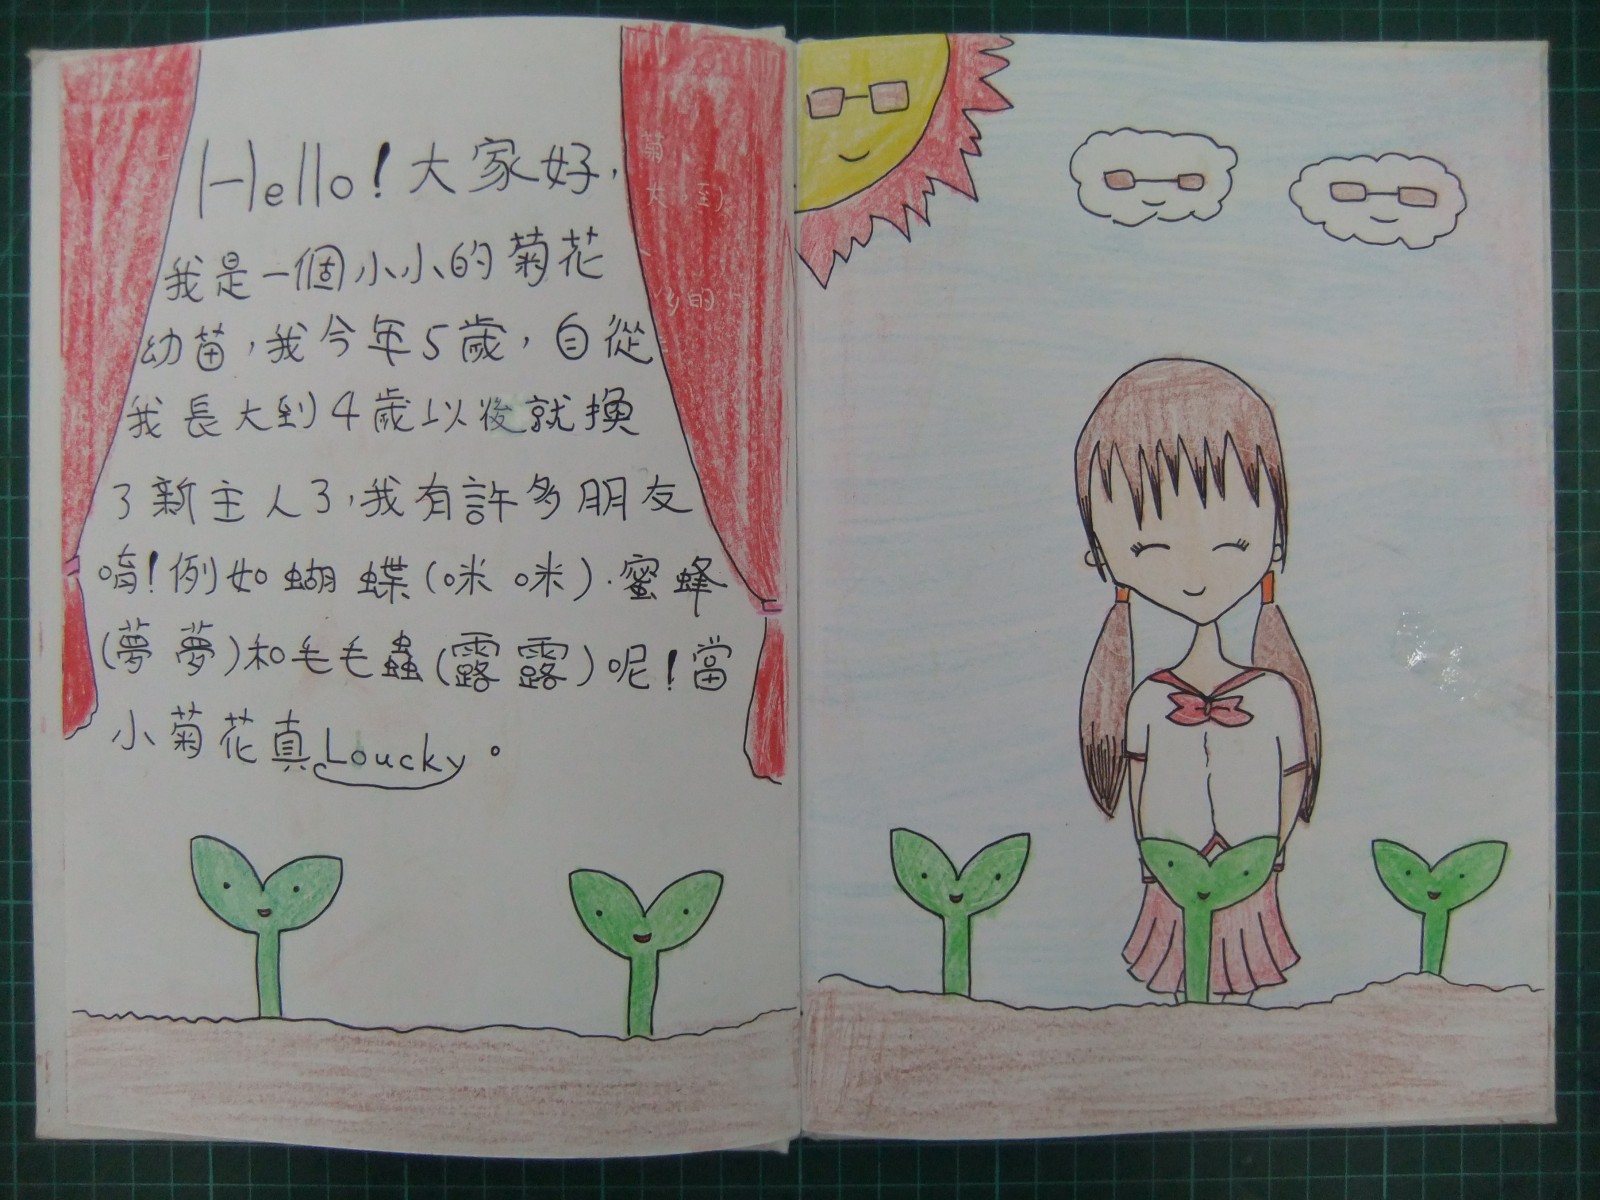 Hello!大家好,
我是一個小小的菊花
幼苗,我今年5歲,自從
我長大到4歲以後就換
了新主人了,我有許多朋友
唷!例如蝴蝶(咪咪)．蜜蜂
(夢夢)和毛毛蟲(露露)呢!當
小菊花真Loucky。